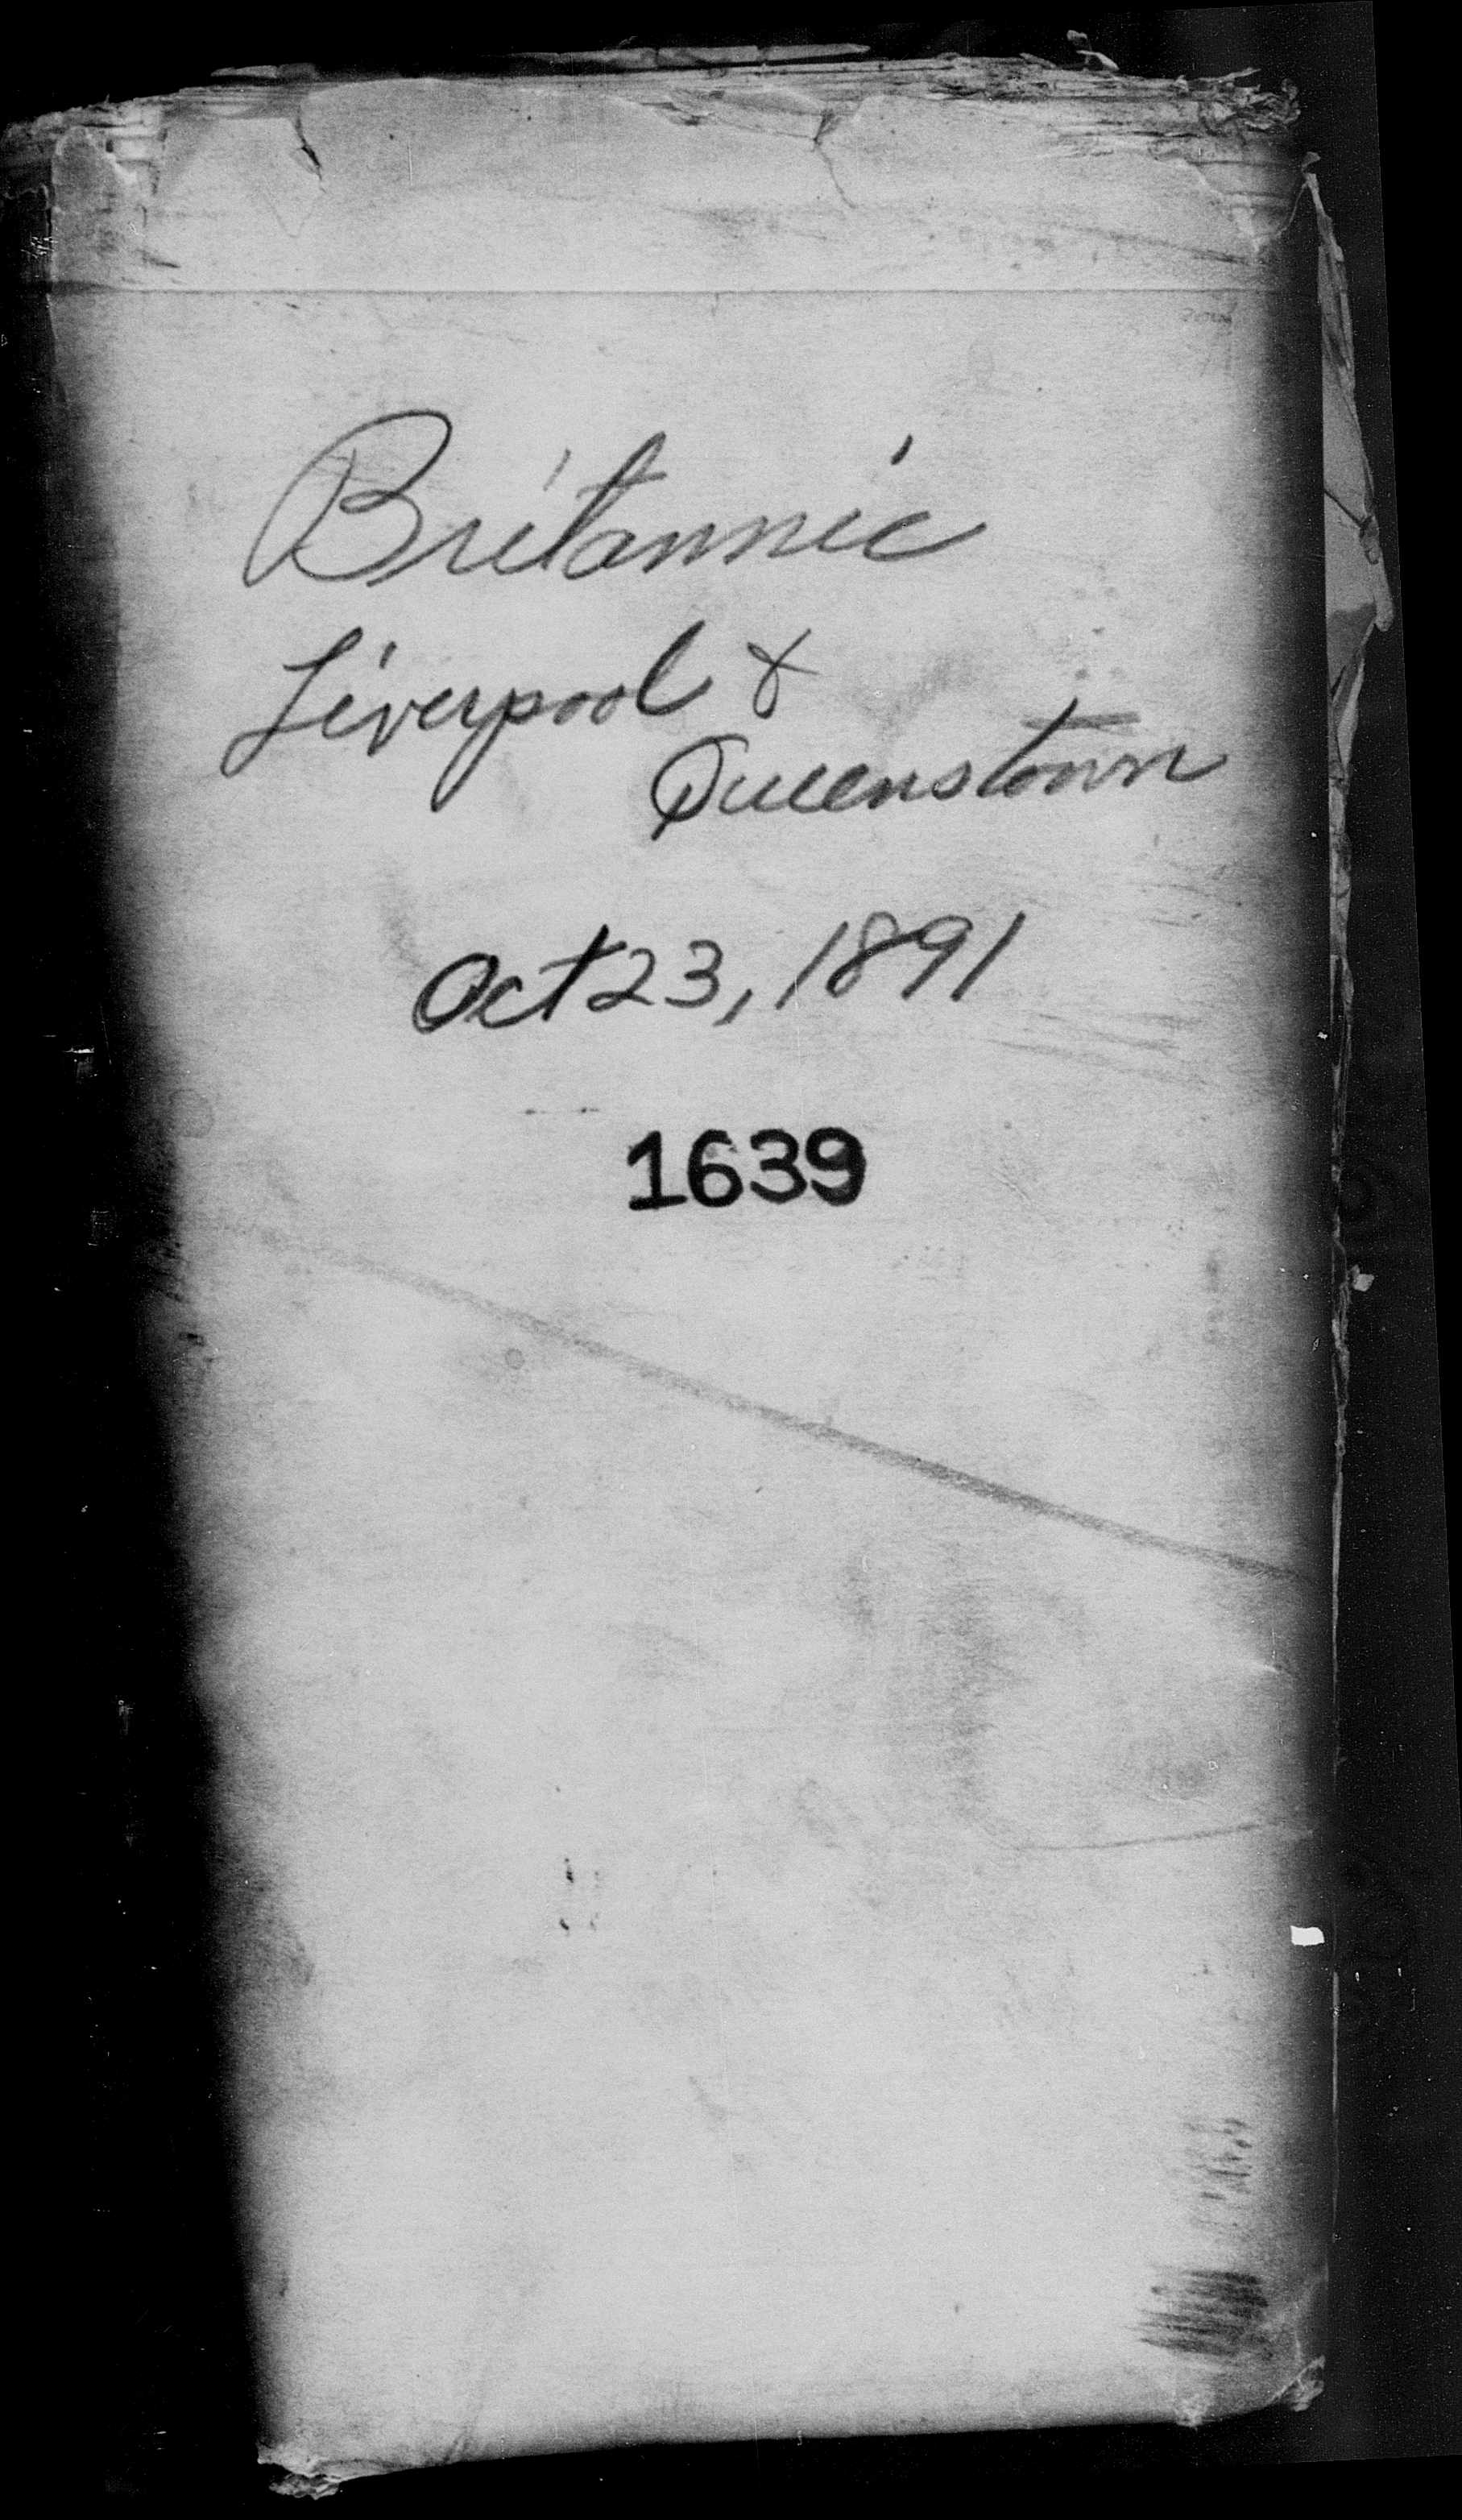 Britannic
Liverpool &
Queenstown
Oct 23, 1891
1639